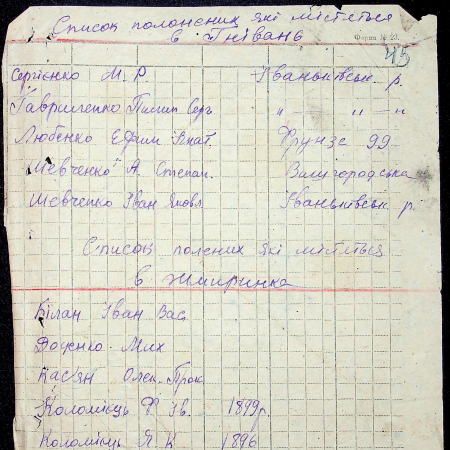 Список полонених які містяться
в Гнівань
Форма № 23.
45
Сергієнко М. Р Іваньківськ. р.
Гавриленко Пилип Серг " — " — "
Любенко Ефим Гнат. Фрунзе 99
Шевченко А. Степан. Вишгородська
Шевченко Іван Яковл. Іваньківськ р.
Список полених які містяться
в Жмиринка
Білан Іван Вас
Доценко Мих
Касьян Олек. Прок
Коломієць Ф Ів. 1899 р.
Коломієць Я. К 1896